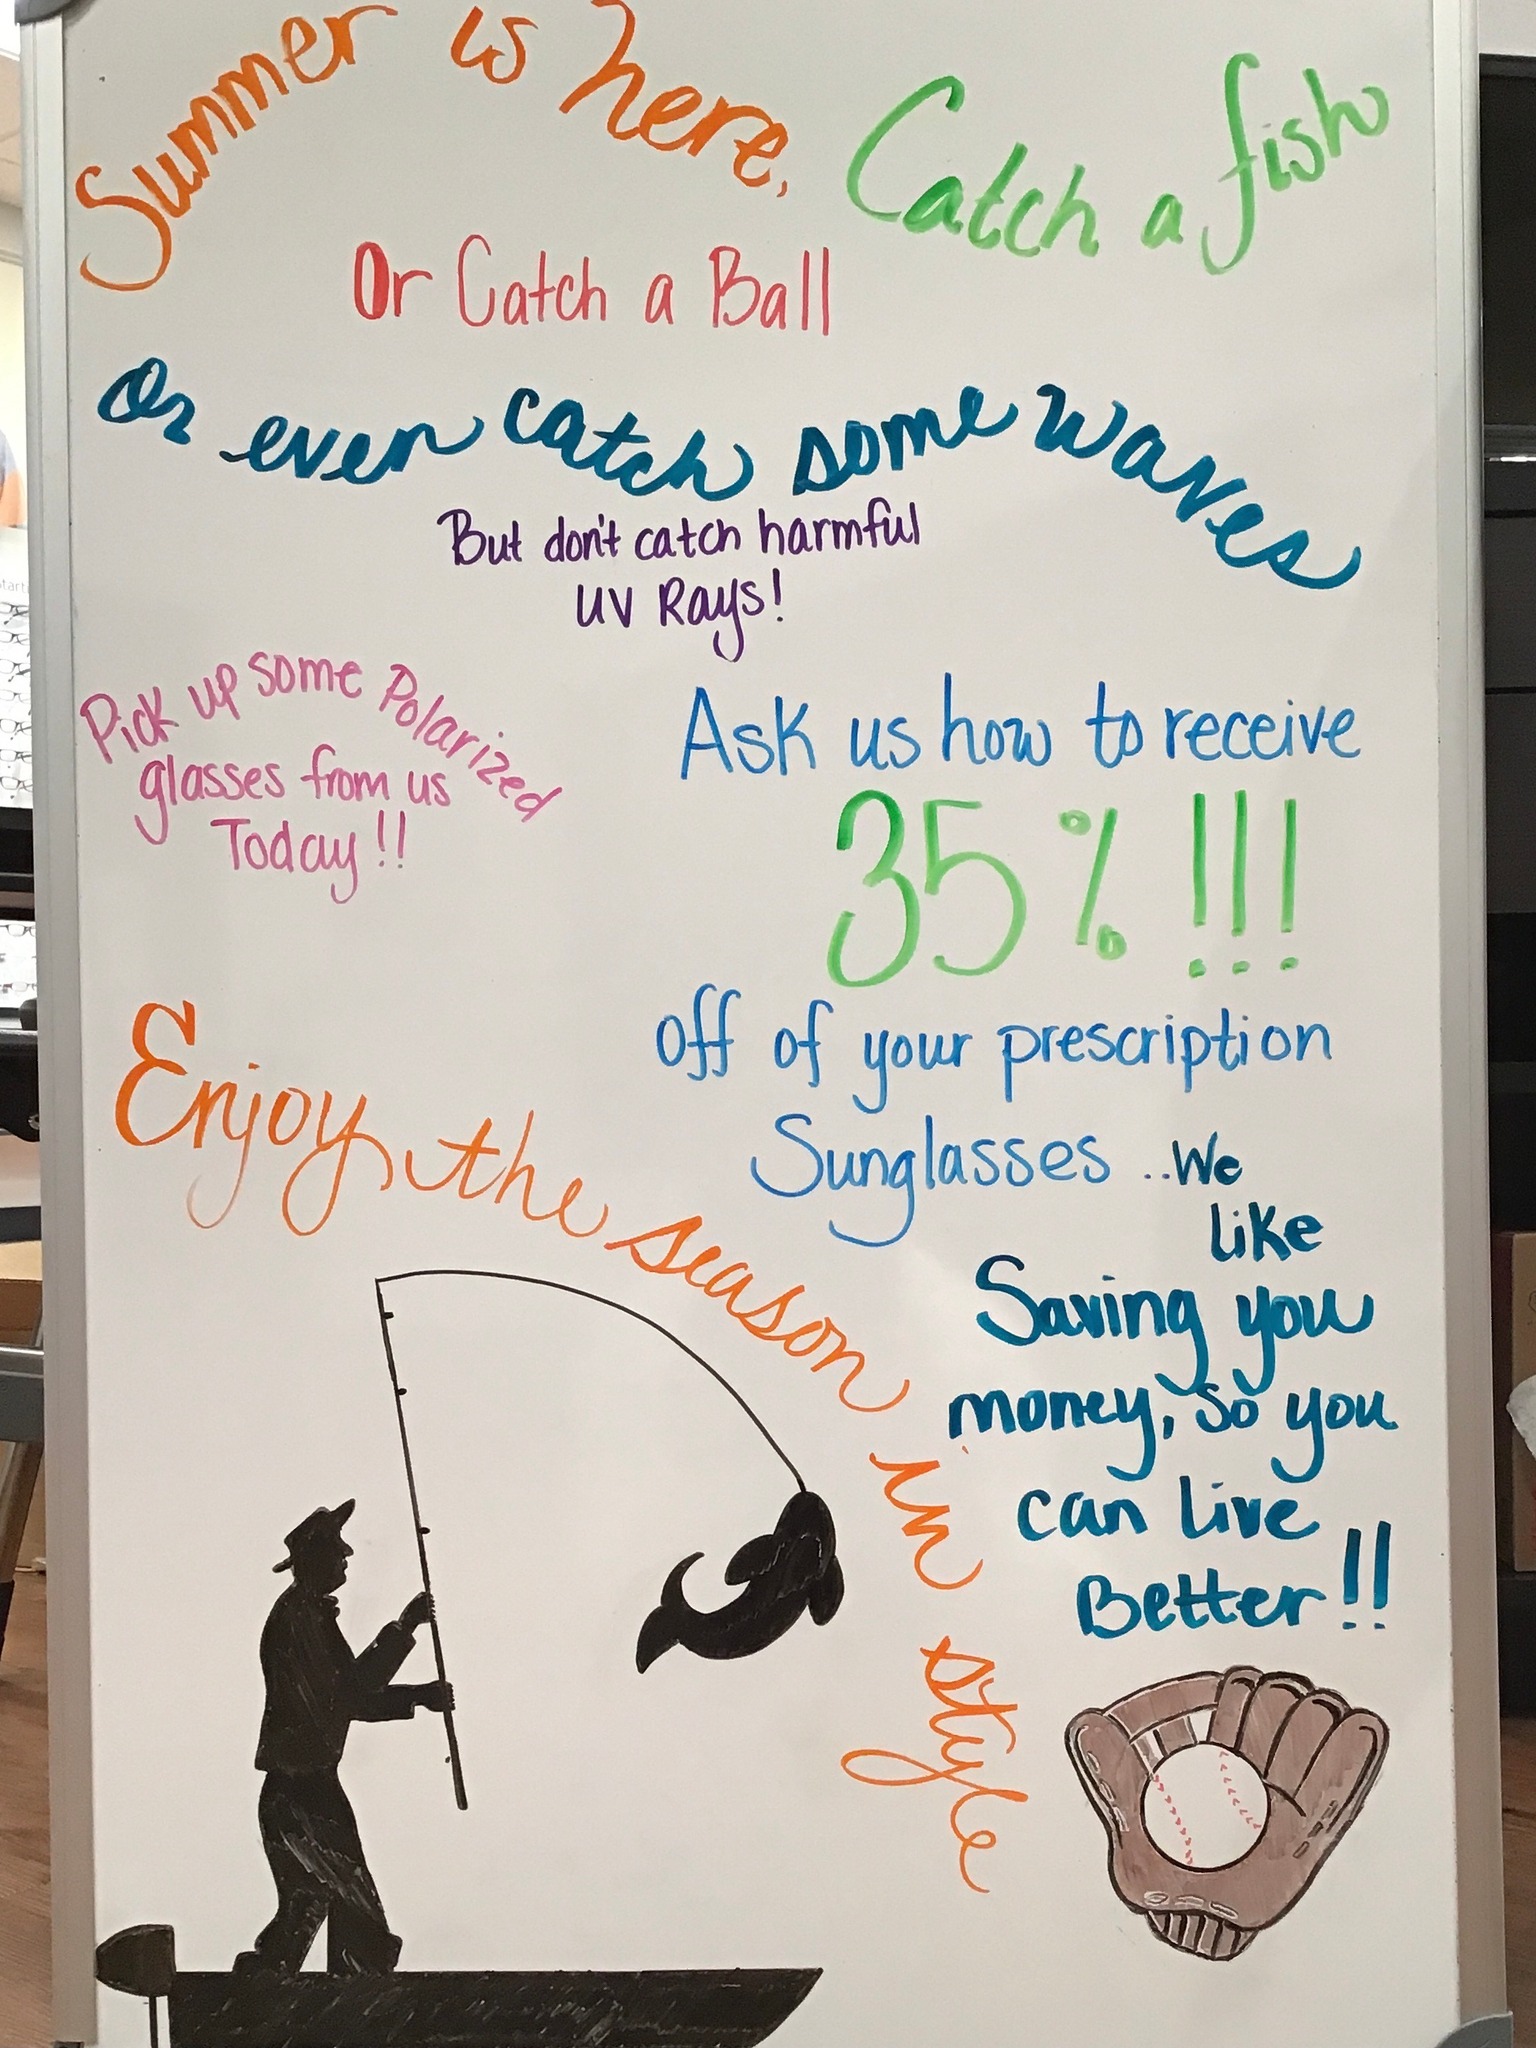 Summer is here, Catch a fish
Or Catch a Ball
Or even catch some waves
But don't catch harmful
UV Rays!
Pick up some Polarized
glasses from us
Today!!
Ask us how to receive
35%!!!
off of your prescription
Sunglasses ..We
like
Saving you
money, so you
can live
Better!!
Enjoy the season in style